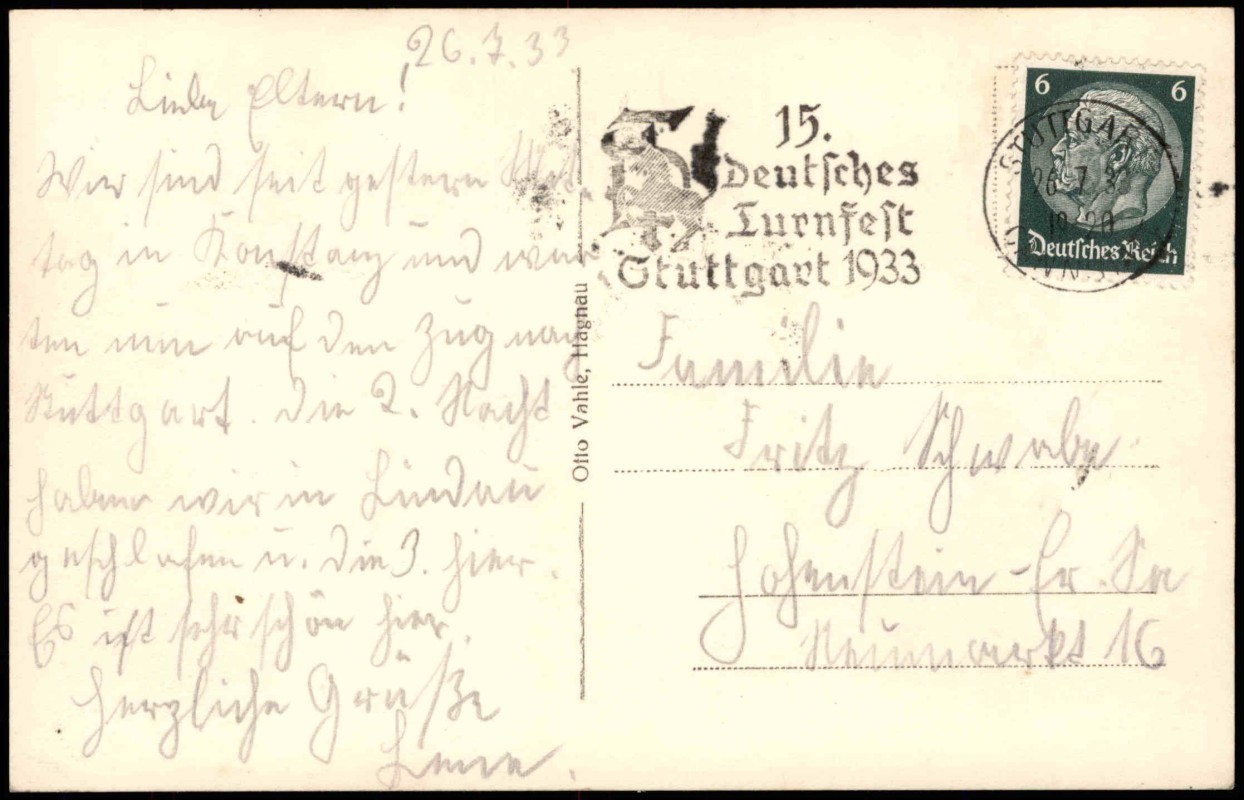 26.7.33
Liebe Eltern!
Wir sind seit gestern Mit-
tag in Konstanz und war-
ten nun auf den Zug nach
Stuttgart. Die 2. Nacht
haben wir in Lindau
geschlafen u. die 3. hier.
Es ist sehr schön hier.
Herzliche Grüße
Lene.
Otto Vahle, Hagnau
15.
Deutsches
Turnfest
Stuttgart 1933
6 6
Deutsches Reich
STUTTGART
26 7 3
Familie
Fritz Schwabe
Hohenstein-Er. Sa
Neumarkt 16